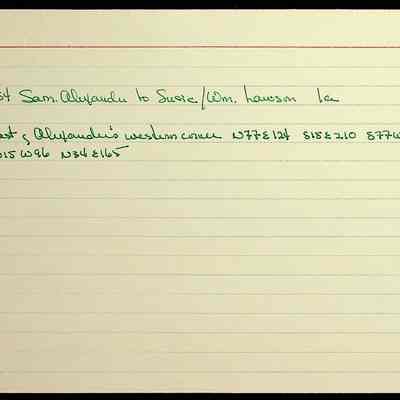 54 Sam. Alexander to Susie/Wm. Lawson 1a
east of Alexander's western corner N77E124 S15E210 S77W
N15W96 N34E165